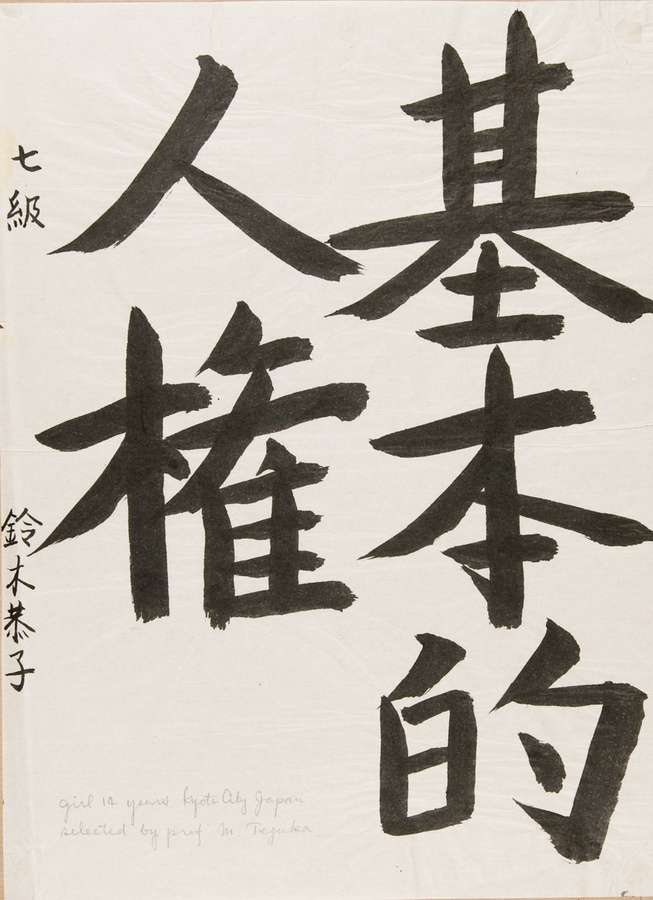 基本的
人権
七級 鈴木恭子
girl 12 years Kyoto City Japan
selected by prof M. Tezuka.